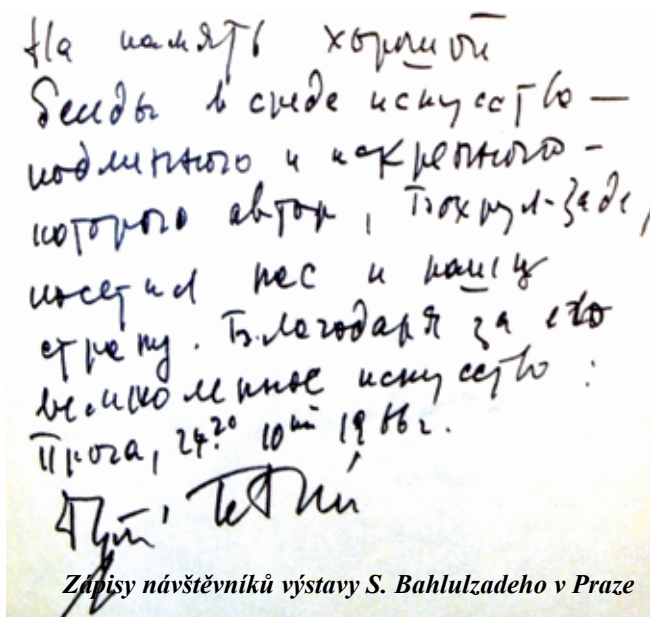 На память хорошой
беседы в среде искусство —
подлинного и искренного -
которого автор, Бохлул-Заде,
посетил нас и нашу
страну. Благодаря за его
великолепное искусство.
Прага, 24го 10ии 1966 г.
Zápisy návštěvníků výstavy S. Bahlulzadeho v Praze